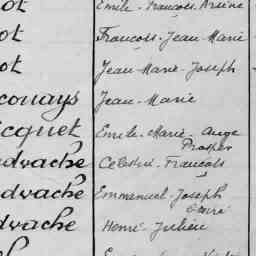 ot Emile - François Arsène
ot François - Jean Marie
ot Jean Marie - Joseph
couays Jean - Marie
cquet Emile - Marie - Ange
Prosper
dvache Célestin - François
dvache Emmanuel - Joseph
Désiré
dvache Henri - Julien